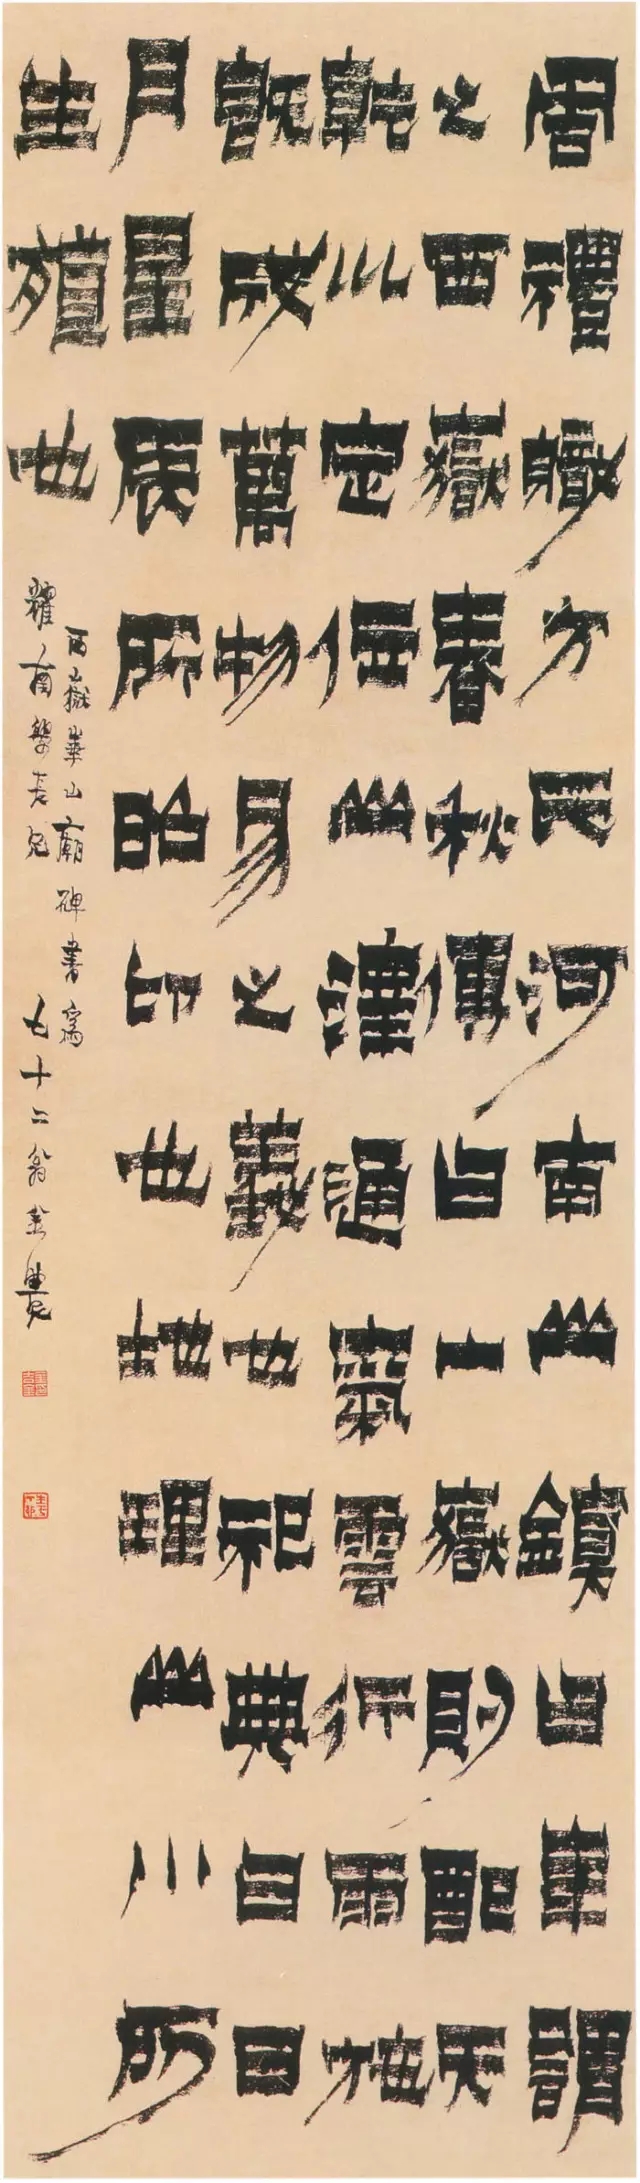 周禮職方氏河南山鎮曰華謂
之西嶽春秋傳曰山嶽則配天
乾巛定位山澤通氣雲行雨施
既成萬物易之義也祀典曰日
月星辰所昭卬也地理山川所
生殖也
西嶽華山廟碑書寫
耀南學長兄七十二翁金農